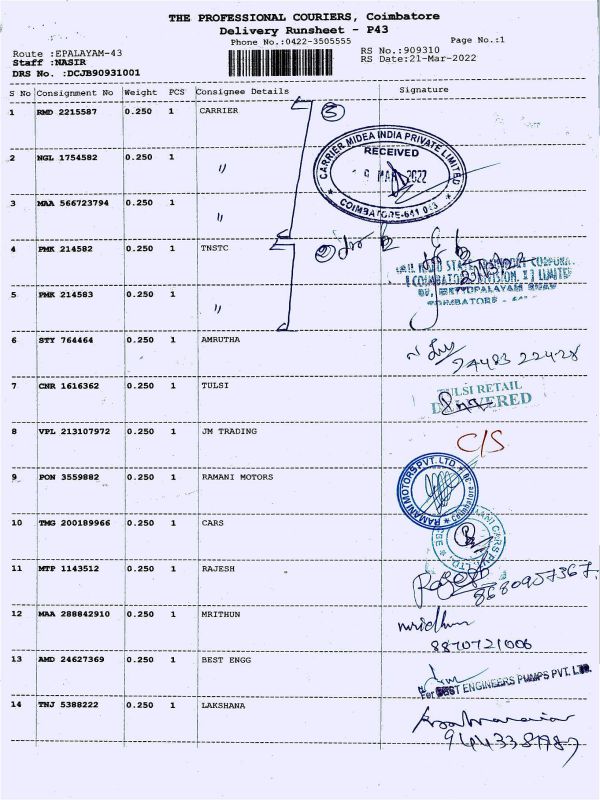 THE PROFESSIONAL COURIERS, Coimbatore
Delivery Runsheet - P43
Phone No.:0422-3505555 Page No.:1
Route :EPALAYAM-43 RS No.:909310
Staff :NASIR RS Date:21-Mar-2022
DRS No. :DCJB90931001
S No Consignment No Weight PCS Consignee Details Signature
1 RMD 2215587 0.250 1 CARRIER 3
CARRIER MIDEA INDIA PRIVATE LIMITED
RECEIVED
9 MAR 2022
COIMBATORE-641
2 NGL 1754582 0.250 1 "
3 MAA 566723794 0.250 1 "
4 PMK 214582 0.250 1 TNSTC 2
5 PMK 214583 0.250 1 "
6 STY 764464 0.250 1 AMRUTHA
94483 22428
7 CNR 1616362 0.250 1 TULSI TULSI RETAIL
DELIVERED
8 VPL 213107972 0.250 1 JM TRADING C/S
9 PON 3559882 0.250 1 RAMANI MOTORS RAMANI MOTORS PVT. LTD.
10 TMG 200189966 0.250 1 CARS
11 MTP 1143512 0.250 1 RAJESH Rajesh
8680907367.
12 MAA 288842910 0.250 1 MRITHUN mridhun
8870721006
13 AMD 24627369 0.250 1 BEST ENGG
For BEST ENGINEERS PUMPS PVT. LTD.
14 TNJ 5388222 0.250 1 LAKSHANA